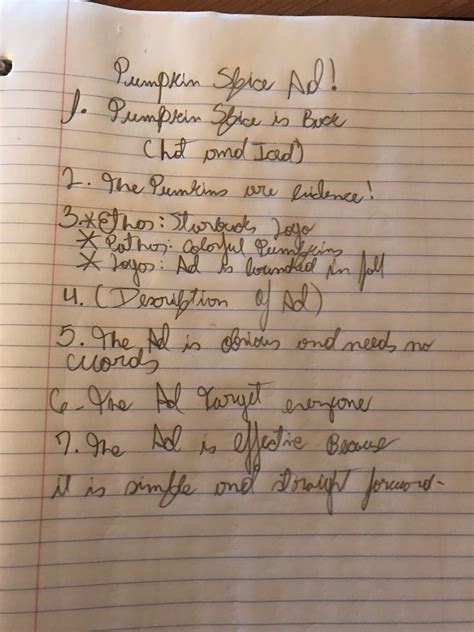 Pumpkin Spice Ad!
1. Pumpkin Spice is Back
(hot and Iced)
2. The Pumkins are evidence!
3.*Ethos: Starbucks Logo
* Pathos: Colorful Pumpkins
* Logos: Ad is bounded in fall
4. (Description of Ad)
5. The Ad is obvious and needs no
words
6- The Ad Target everyone
7. The Ad is effective Because
it is simple and straight forward-